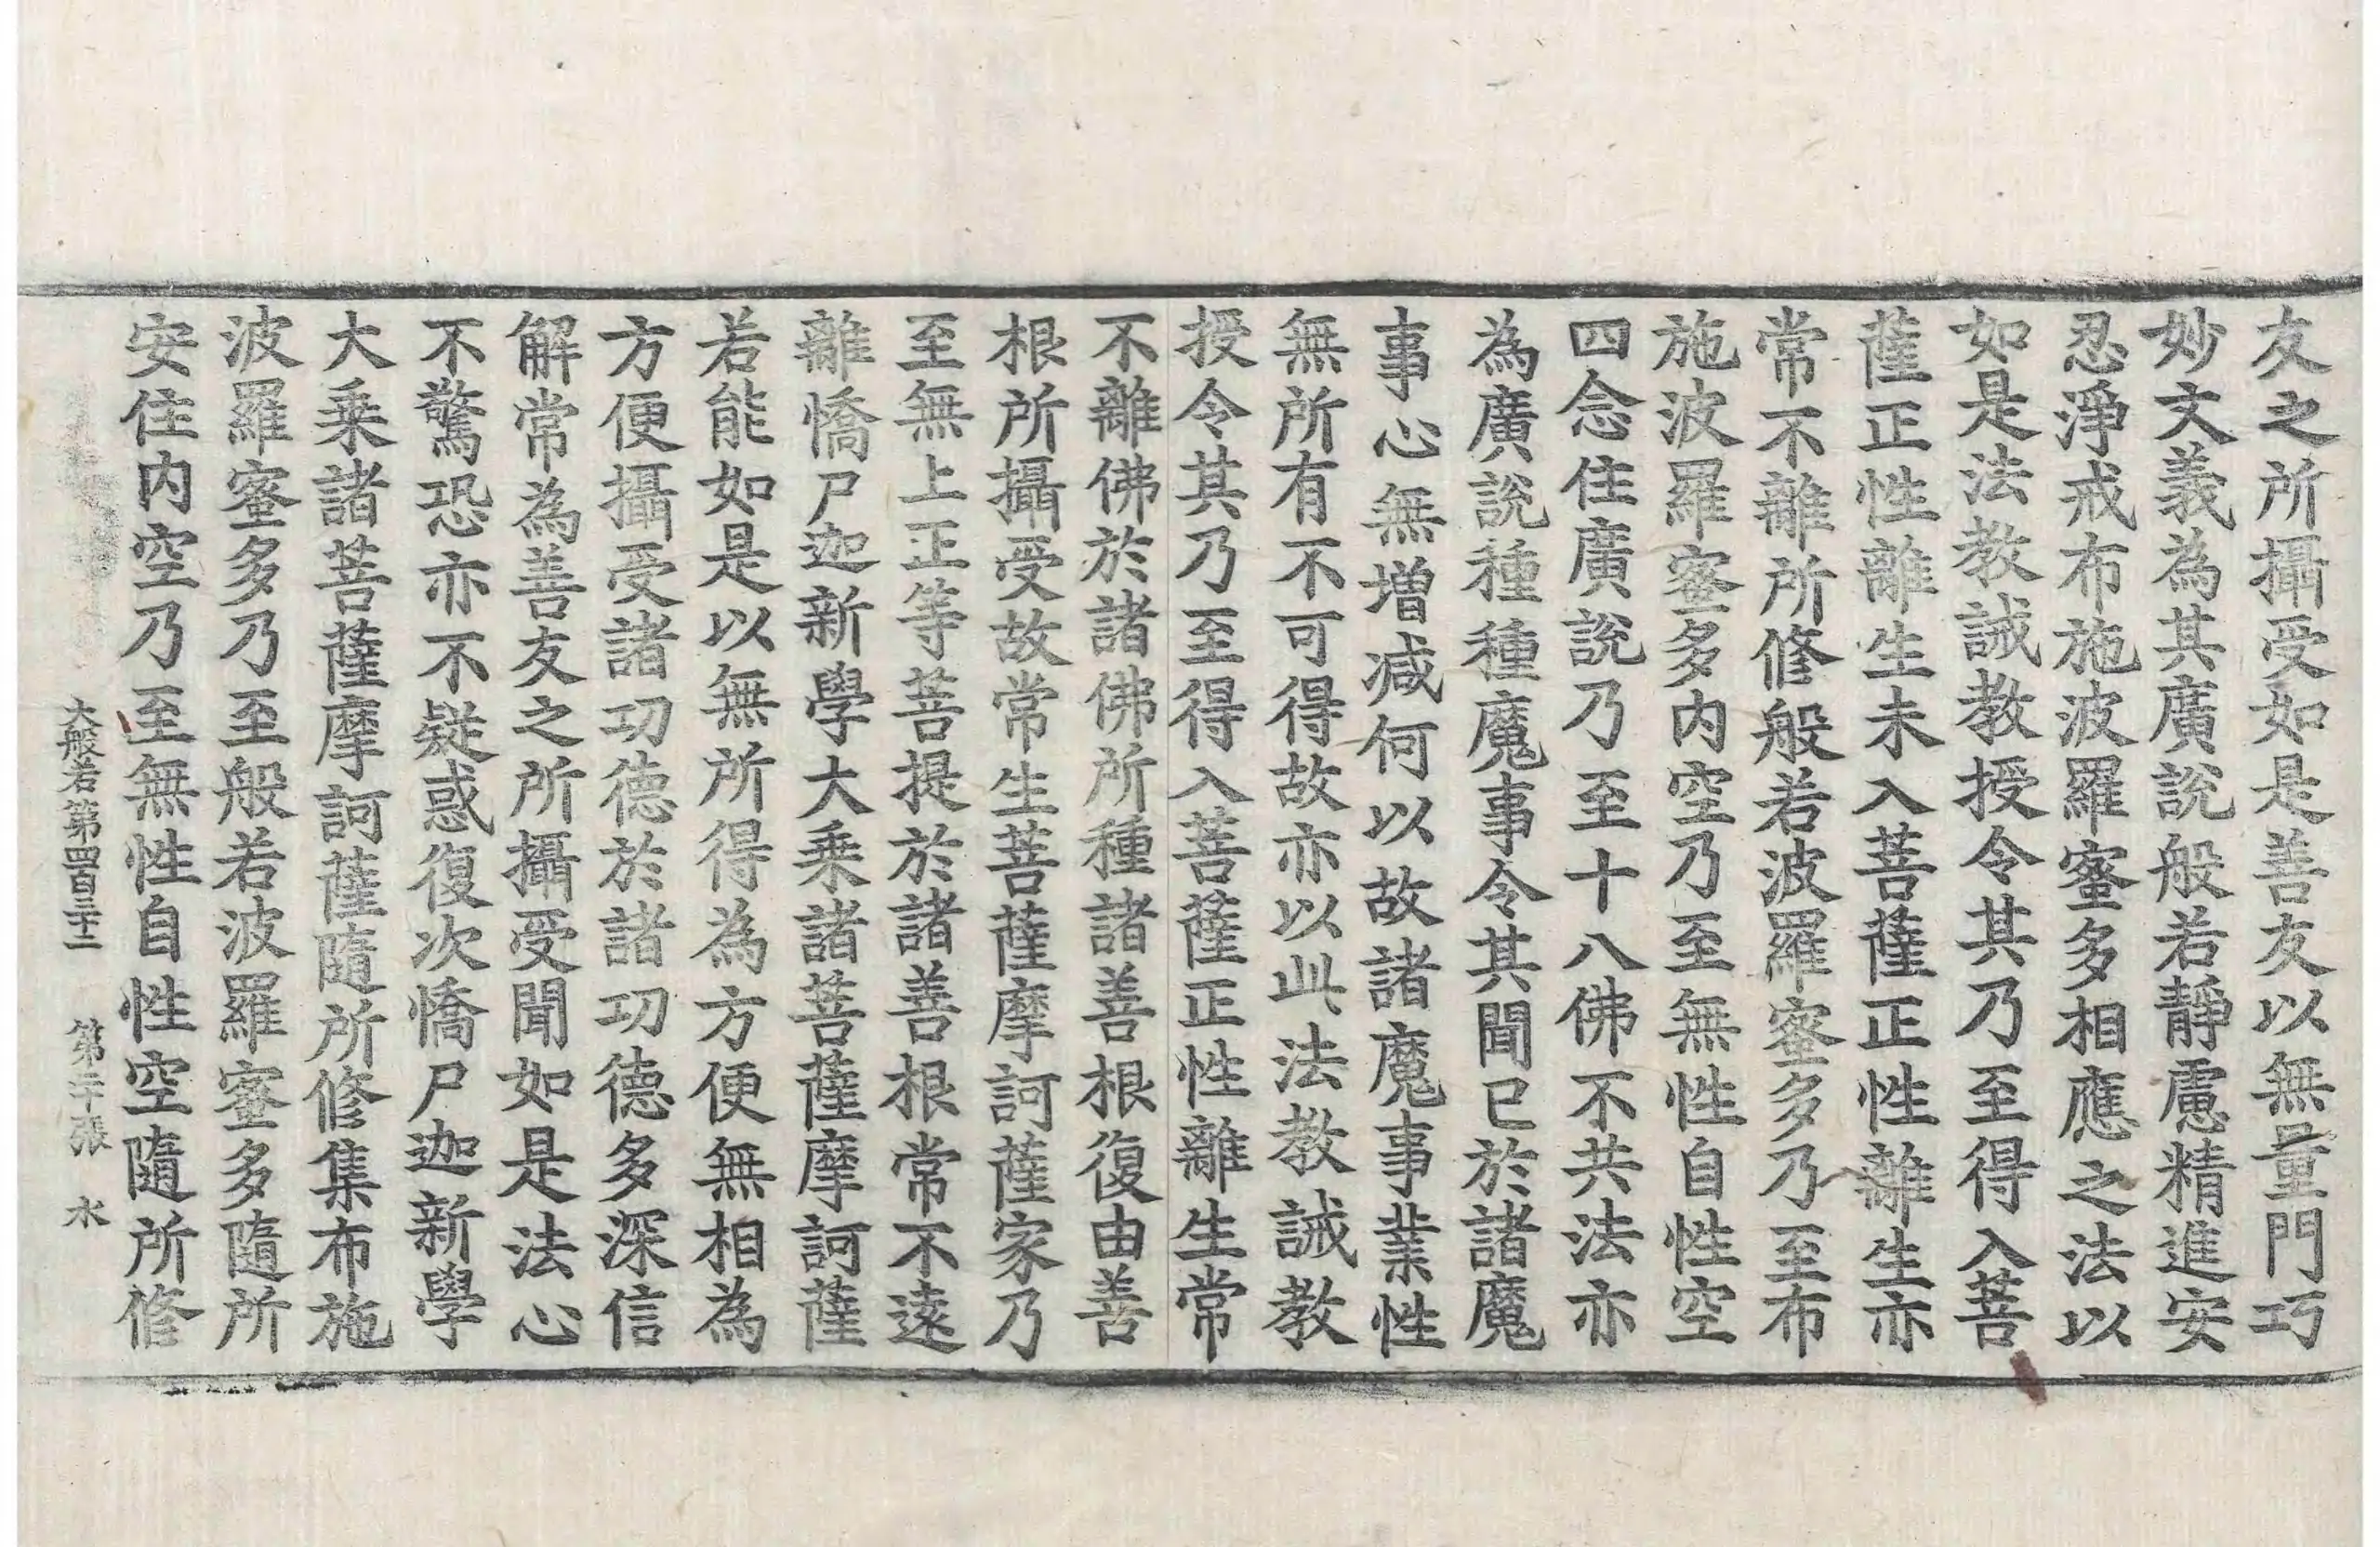 友之所攝受如是善友以無量門巧
妙文義為其廣說般若靜慮精進安
忍淨戒布施波羅蜜多相應之法以
如是法教誡教授令其乃至得入菩
薩正性離生未入菩薩正性離生亦
常不離所修般若波羅蜜多乃至布
施波羅蜜多內空乃至無性自性空
四念住廣說乃至十八佛不共法亦
為廣說種種魔事令其聞已於諸魔
事心無增減何以故諸魔事業性
無所有不可得故亦以此法教誡教
授令其乃至得入菩薩正性離生常
不離佛於諸佛所種諸善根復由善
根所攝受故常生菩薩摩訶薩家乃
至無上正等菩提於諸善根常不遠
離憍尸迦新學大乘諸菩薩摩訶薩
若能如是以無所得為方便無相為
方便攝受諸功德於諸功德多深信
解常為善友之所攝受聞如是法心
不驚恐亦不疑惑復次憍尸迦新學
大乘諸菩薩摩訶薩隨所修集布施
波羅蜜多乃至般若波羅蜜多隨所
安住內空乃至無性自性空隨所修
大般若第四百三十二 第二十張 水